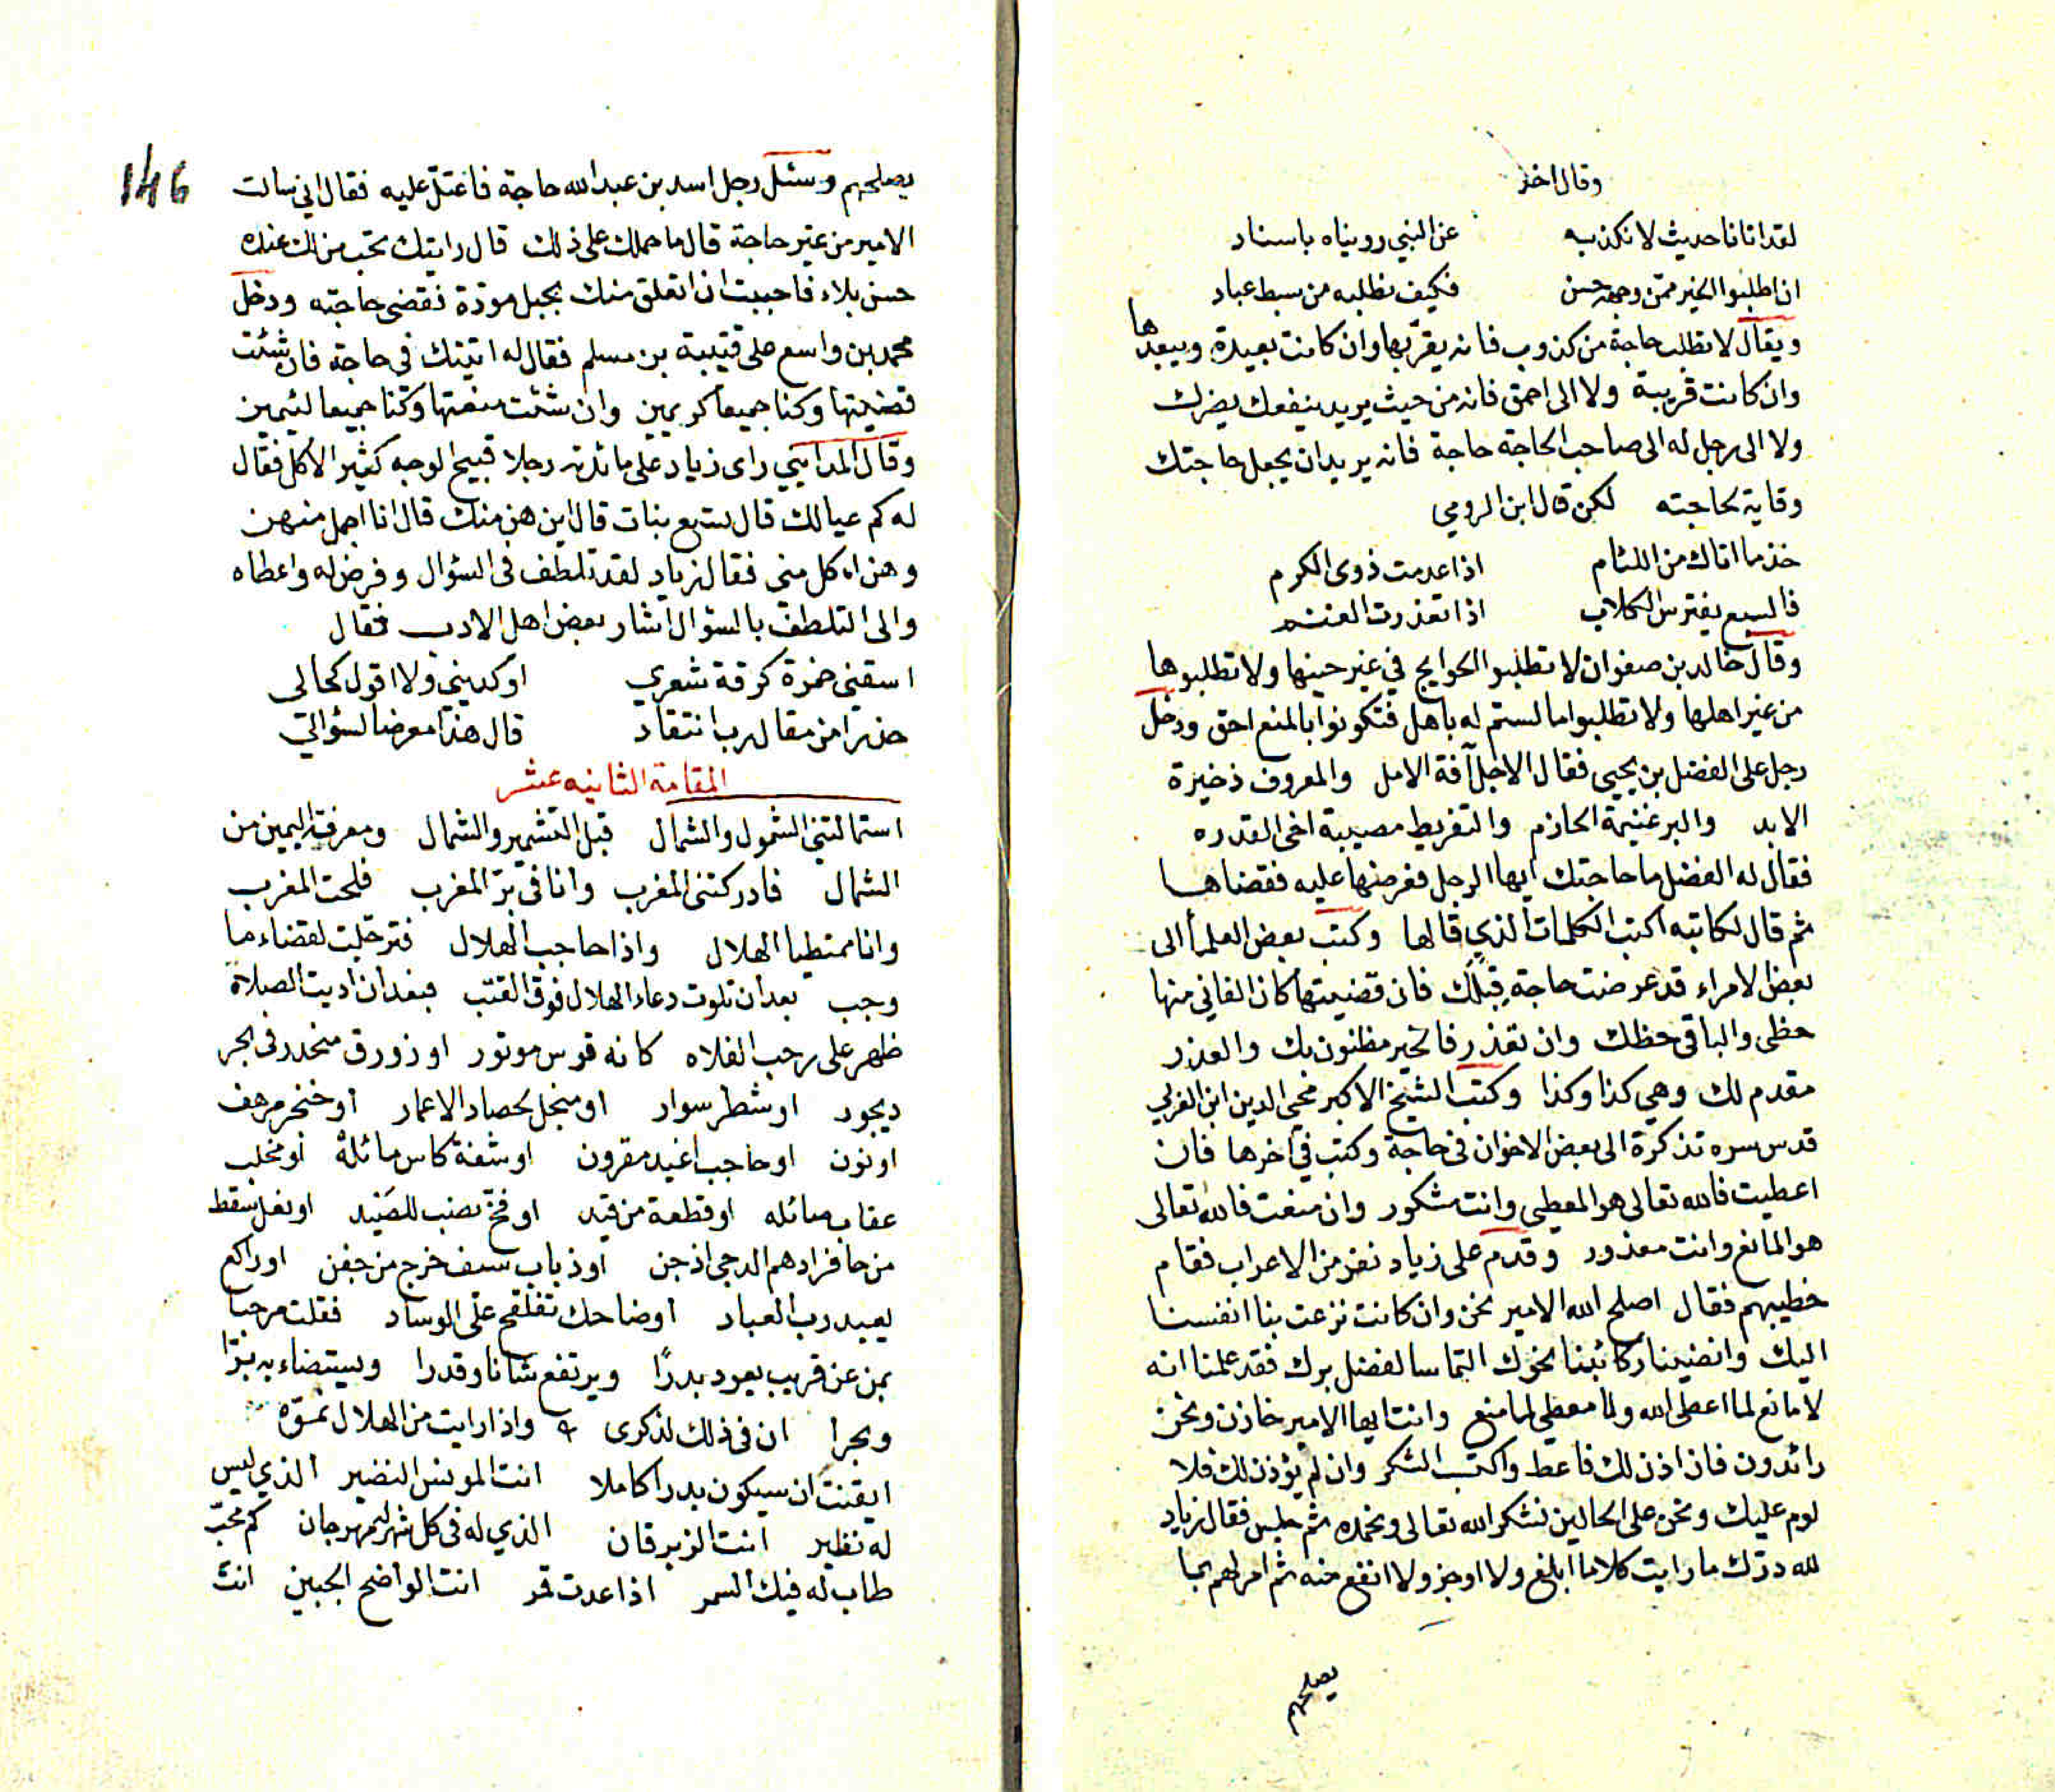 وقال اخر
لقد اتانا حديث لا نكذبه عن النبي رويناه باسناد
ان اطلبوا الخير ممن وجهه حسن فكيف نطلبه من سبط عباد
ويقال لا تطلب حاجة من كذوب فانه يقربها وان كانت بعيدة ويبعدها
وان كانت قريبة ولا الى احمق فانه من حيث يريد ينفعك يضرك
ولا الى رجل له الى صاحب الحاجة حاجة فانه يريد ان يجعل حاجتك
وقاية لحاجته لكن قال ابن الرومي
خذ ما اتاك من اللئام اذا عدمت ذوى الكرم
فالسبع يفترس الكلاب اذا تعذرت الغنم
وقال خالد بن صفوان لا تطلبوا الحوايج في غير حينها ولا تطلبوها
من غير اهلها ولا تطلبوا ما لستم له باهل فتكونوا بالمنع احق ودخل
رجل على الفضل بن يحيى فقال الاجل آفة الامل والمعروف ذخيرة
الابد والبر غنيمة الحازم والتفريط مصيبة اخى القدره
فقال له الفضل ما حاجتك ايها الرجل فعرضها عليه فقضاها
ثم قال لكاتبه اكتب الكلمات الذي قالها وكتب بعض العلمأ الى
بعض الامراء قد عرضت حاجة قبلك فان قضيتها كان الفاني منها
حظى والباقى حظك وان تعذر فالخير مظنون بك والعذر
مقدم لك وهي كذا وكذا وكتب الشيخ الاكبر محي الدين ابن العربي
قدس سره تذكرة الى بعض الاخوان في حاجة وكتب في آخرها فان
اعطيت فالله تعالى هو المعطى وانت مشكور وان منعت فالله تعالى
هو المانع وانت معذور وقدم على زياد نفر من الاعراب فقام
خطيبهم فقال اصلح الله الامير نحن وان كانت نزعت بنا انفسنا
اليك وانضينا ركائبنا نحوك التماسا لفضل برك فقد علمنا انه
لا مانع لما اعطى الله ولا معطي لما منع وانت ايها الامير خازن ونحن
رائدون فان اذن لك فاعط واكتب الشكر وان لم يؤذن لك فلا
لوم عليك ونحن على الحالين نشكر الله تعالى ونحمده ثم جلس فقال زياد
لله درك ما رايت كلاما ابلغ ولا اوجز ولا انفع منه ثم امر لهم بما
يصلحهم
146
يصلحهم وسئل رجل اسد بن عبد الله حاجة فاعتل عليه فقال اني سالت
الامير من غير حاجة قال ما حملك على ذلك قال رايتك تحب من لك عنده
حسن بلاء فاحببت ان اتعلق منك بحبل مودة فقضى حاجته ودخل
محمد بن واسع على قتيبة بن مسلم فقال له اتيتك في حاجة فان شئت
قضيتها وكنا جميعا كريمين وان شئت منعتها وكنا جميعا لئيمين
وقال المدايني راى زياد على مائدته رجلا قبيح الوجه كثير الاكل فقال
له كم عيالك قال سبع بنات قال اين هن منك قال انا اجمل منهن
وهن اكل منى فقال زياد لقد تلطف فى السؤال وفرض له واعطاه
والى التلطف بالسؤال اشار بعض اهل الادب فقال
اسقني خمرة كرقة شعري او كديني ولا اقول كحالى
حذرا من مقال رب انتقاد قال هذا معرضا لسؤالي
المقامة الثانيه عشر
استمالتني الشمول والشمال قبل التشمير والشمال ومعرفة اليمين من
الشمال فادركتنى المغرب وانا فى بر المغرب فلحت المغرب
وانا ممتطيا الهلال واذا حاجب الهلال فترجلت لقضاء ما
وجب بعد ان تلوت دعاء الهلال فوق القتب فبعد ان اديت الصلاة
ظهر على رحب الفلاه كانه قوس موتور او زورق منحدر فى بحر
ديجور او شطر سوار او منجل لحصاد الاعمار او خنجر مرهف
او نون او حاجب اغيد مقرون او شفة كاس مائلة او مخلب
عقاب صائله او قطعة من قيد او فخ نصب للصيد او نعل سقط
من حافر ادهم الدجى اذ جن او ذباب سيف خرج من جفن او راكع
يعبد رب العباد او ضاحك على الوساد فقلت مرحبا
بمن عن قريب يعود بدرًا ويرتفع شانا وقدرا ويستضاء به برا
وبحرا ان فى ذلك لذكرى واذا رايت من الهلال نموّه
ايقنت ان سيكون بدرا كاملا انت المونس النضير الذي ليس
له نظير انت الزبرقان الذي له فى كل شهر مهرجان كم محب
طاب له فيك السمر اذا عدت قمر انت الواضح الجبين انت